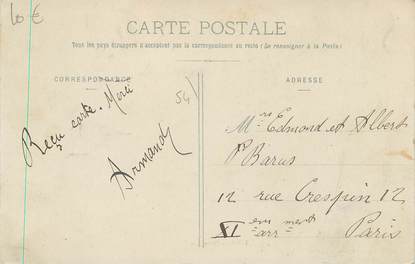 10 €
CARTE POSTALE
Tous les pays étrangers n'acceptent pas la correspondance au recto (Se renseigner à la Poste)
CORRESPONDANCE
ADRESSE
54
Reçu carte. Merci
Armand
Mrs Edmond et Albert
Barus
12 rue Crespin 12
XIem arrment Paris